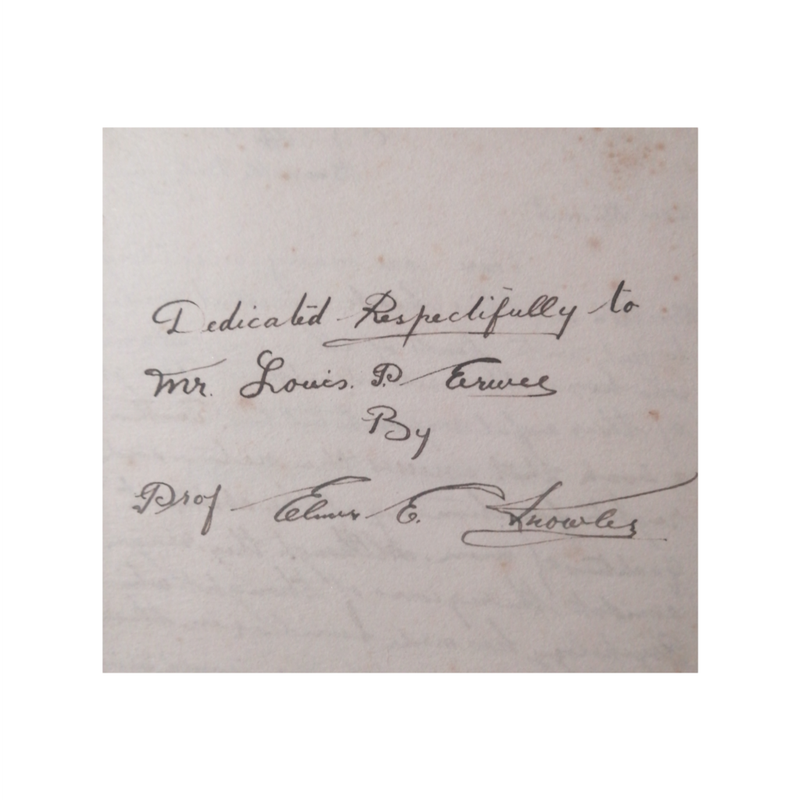 Dedicated Respectifully to
Mr. Louis. P. Erwee
By
Prof Elmer E. Knowles